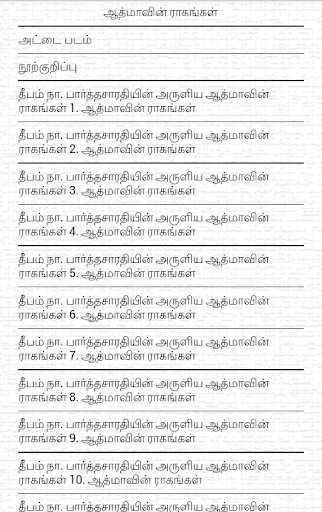 ஆத்மாவின் ராகங்கள்
அட்டை படம்
நூற்குறிப்பு
தீபம் நா. பார்த்தசாரதியின் அருளிய ஆத்மாவின்
ராகங்கள் 1. ஆத்மாவின் ராகங்கள்
தீபம் நா. பார்த்தசாரதியின் அருளிய ஆத்மாவின்
ராகங்கள் 2. ஆத்மாவின் ராகங்கள்
தீபம் நா. பார்த்தசாரதியின் அருளிய ஆத்மாவின்
ராகங்கள் 3. ஆத்மாவின் ராகங்கள்
தீபம் நா. பார்த்தசாரதியின் அருளிய ஆத்மாவின்
ராகங்கள் 4. ஆத்மாவின் ராகங்கள்
தீபம் நா. பார்த்தசாரதியின் அருளிய ஆத்மாவின்
ராகங்கள் 5. ஆத்மாவின் ராகங்கள்
தீபம் நா. பார்த்தசாரதியின் அருளிய ஆத்மாவின்
ராகங்கள் 6. ஆத்மாவின் ராகங்கள்
தீபம் நா. பார்த்தசாரதியின் அருளிய ஆத்மாவின்
ராகங்கள் 7. ஆத்மாவின் ராகங்கள்
தீபம் நா. பார்த்தசாரதியின் அருளிய ஆத்மாவின்
ராகங்கள் 8. ஆத்மாவின் ராகங்கள்
தீபம் நா. பார்த்தசாரதியின் அருளிய ஆத்மாவின்
ராகங்கள் 9. ஆத்மாவின் ராகங்கள்
தீபம் நா. பார்த்தசாரதியின் அருளிய ஆத்மாவின்
ராகங்கள் 10. ஆத்மாவின் ராகங்கள்
தீபம் நா. பார்த்தசாரதியின் அருளிய ஆத்மாவின்